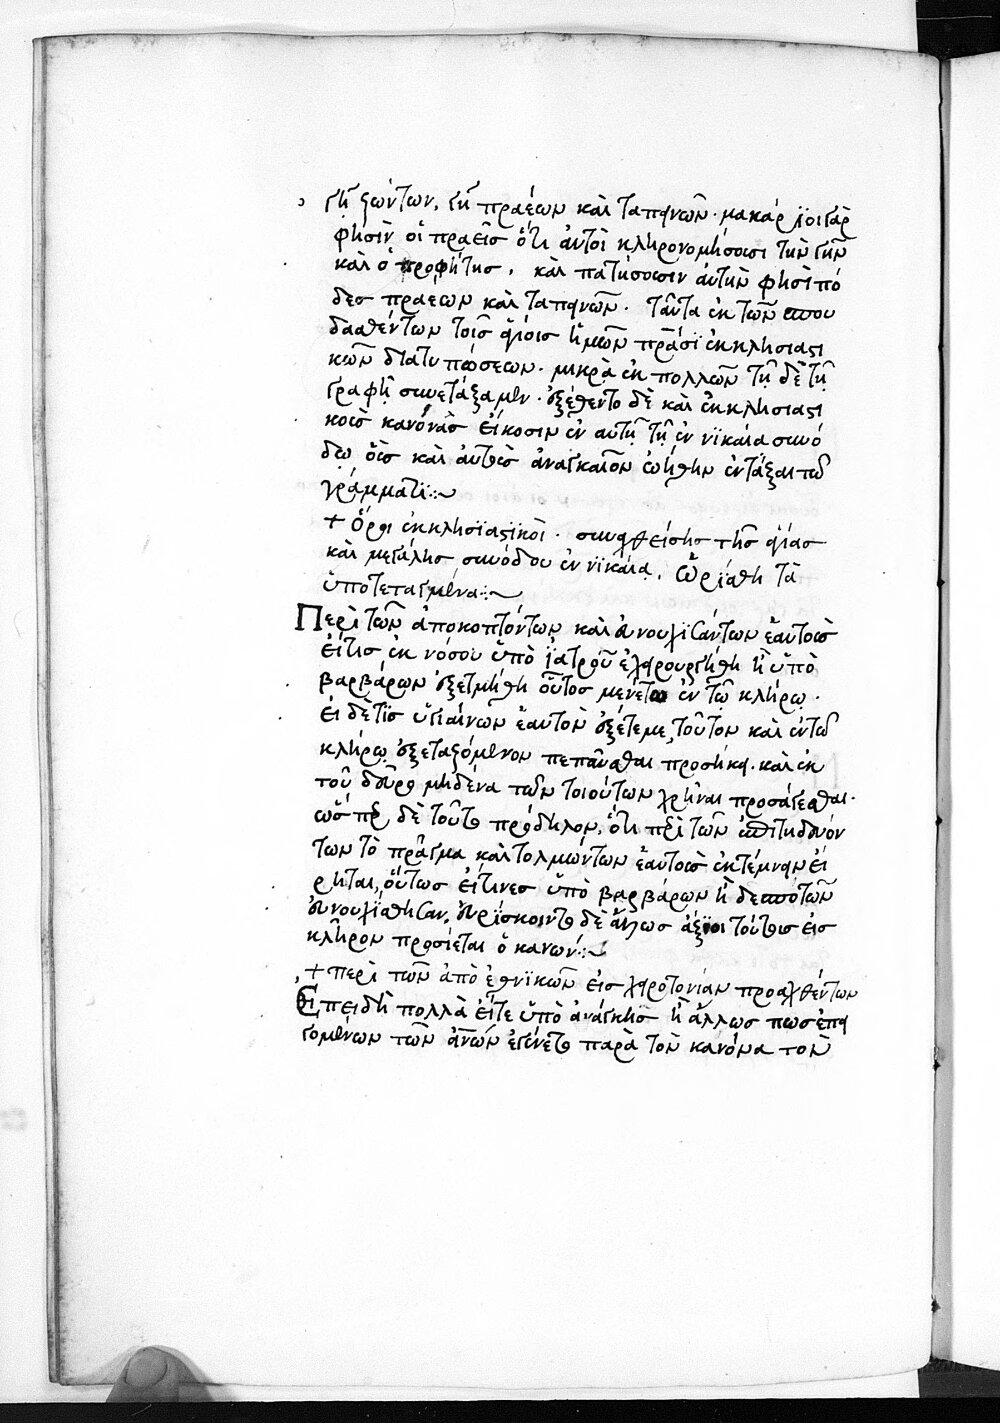 γῆ ζώντων, γῆ πραέων καὶ ταπεινῶν. μακάριοι γὰρ
φησὶν οἱ πραεῖς ὅτι αὐτοὶ κληρονομήσουσι τὴν γῆν
καὶ ὁ προφήτης, καὶ πατήσουσιν αὐτὴν φησὶ πό
δες πραέων καὶ ταπεινῶν. ταῦτα ἐκ τῶν σπου
δασθέντων τοῖς ἁγίοις ἡμῶν πρασι ἐκκλησιαστι
κῶν διατυπώσεων. μικρὰ ἐκ πολλῶν τῇ δὲ τῇ
γραφῇ συνετάξαμεν. ἐξέθεντο δὲ καὶ ἐκκλησιαστι
κοὺς κανόνας εἴκοσιν ἐν αὐτῇ τῇ ἐν νϊκαία συνό
δῳ οὓς καὶ αὐτοὺς ἀναγκαῖον ὠήθην ἐντάξαι τῶ
γράμματϊ:~
+ Ὅροι ἐκκλησϊαστϊκοὶ. συναχθείσης τῆς ἁγίας
καὶ μεγάλης συνόδου ἐν νϊκαία, ὡρίσθη τὰ
ὑποτεταγμένα:~
Περὶ τῶν ἀποκοπτόντων καὶ εὐνουχϊσάντων ἑαυτοὺς
εἴτις ἐκ νόσου ὑπὸ ἰατροῦ ἐχειρουργήθη ἢ ὑπὸ
βαρβάρων ἐξετμήθη οὗτος μενέτω ἐν τῷ κλήρῳ.
εἰ δὲ τὶς ὑγιαίνων ἑαυτὸν ἐξέτεμε, τοῦτον καὶ ἐν τῶ
κλήρῳ ἐξεταζόμενον πεπαῦσθαι προσήκει. καὶ ἐκ
τοῦ δεῦρο μηδένα τῶν τοιούτων χρῆναι προσάγεσθαι.
ὥσπερ δὲ τοῦτο πρόδηλον, ὅτι περὶ τῶν ἐπιτηδευόν
των τὸ πρᾶγμα καὶ τολμώντων ἑαυτοὺς ἐκτέμνειν εἴ
ρηται, οὕτως εἴτινες ὑπὸ βαρβάρων ἢ δεσποτῶν
εὐνουχϊσθησαν, εὑρϊσκοιντο δὲ ἄλλως ἄξϊοι τούτους εἰς
κλῆρον προσίεται ὁ κανών:~
+ περὶ τῶν ἀπὸ ἐθνϊκῶν εἰς χειροτονίαν προαχθέντων
Ἐπειδὴ πολλὰ εἴτε ὑπὸ ἀνάγκης ἢ ἄλλως πως ἐπει
γομένων τῶν ἀνων ἐγένετο παρὰ τὸν κανόνα τὸν